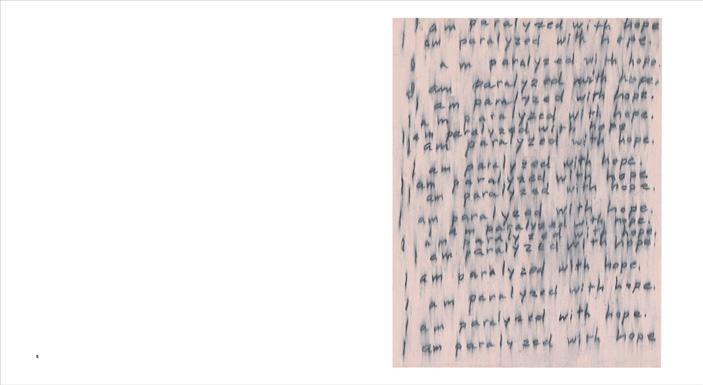 I am paralyzed with hope
am paralyzed with hope.
I am paralyzed with hope.
I am paralyzed with hope.
I am paralyzed with hope.
I am paralyzed with hope.
I am paralyzed with hope
I am paralyzed with hope.
I am paralyzed with hope.
I am paralyzed with hope
I am paralyzed with hope.
I am paralyzed with hope.
I am paralyzed with hope.
I am paralyzed with hope.
I am paralyzed with hope.
I am paralyzed with hope.
I am paralyzed with hope.
I am paralyzed with hope.
I am paralyzed with hope